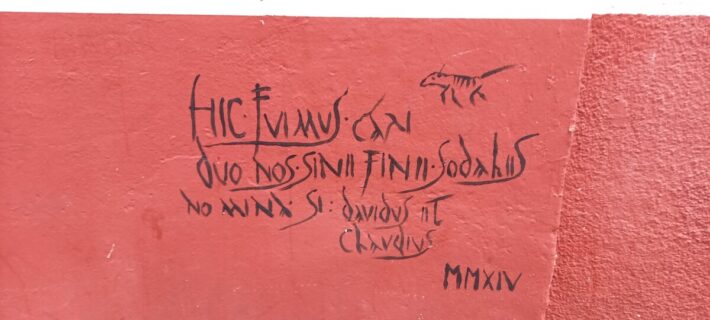 HIC·FVIMVS·CARI
DVO NOS·SINII FINII·SODALIIS
NOMINA·SI: DAVIDVS IIT
CLAVDIVS
MMXIV